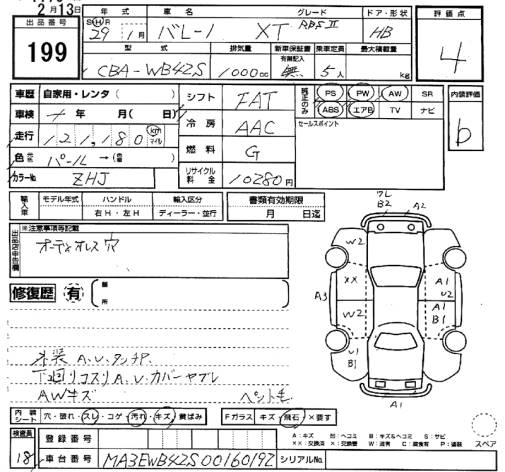 2月13日
出品番号 199
年式 S H R 29年 1月
車名 バレーノ XT
グレード RBSⅡ
ドア・形状 HB
評価点 4
型式 CBA-WB42S
排気量 1000cc
新車保証書 有 無 記入 無
乗車定員 5人
最大積載量 kg
車歴 自家用・レンタ( )
車検 年 月( 日)
走行 121,180 km マイル
色 パール→( )
カラーNo ZHJ
シフト FAT
冷房 AAC
燃料 G
リサイクル料金 10280円
純正のみ PS PW AW SR
ABS エアB TV ナビ
セールスポイント
内装評価 b
輸入車 モデル年式 ハンドル 右H・左H 輸入区分 ディーラー・並行
書類有効期限 月 日迄
※注意事項等記載
オーディオレス穴
修復歴 有 箇所
外装 A.U.タッチP.
下廻りコスリA.U.カバーヤブレ
AWキズ
ペット毛
内装シート 穴・破れ・スレ・コゲ・汚れ・キズ・黄ばみ
Fガラス キズ・飛石・×要す
スペア
A:キズ B:ヘコミ B:キズ&ヘコミ S:サビ
XX:交換済 X:交換要 W:波有 C:腐食有 P:塗装
検査員 18
登録番号
車台番号 MA3EWB42S00160192
シリアルNo.
ワレ
B2
A2
W2
XX
A3
W2
A1
U2
A1
B1
U1
B1
A1